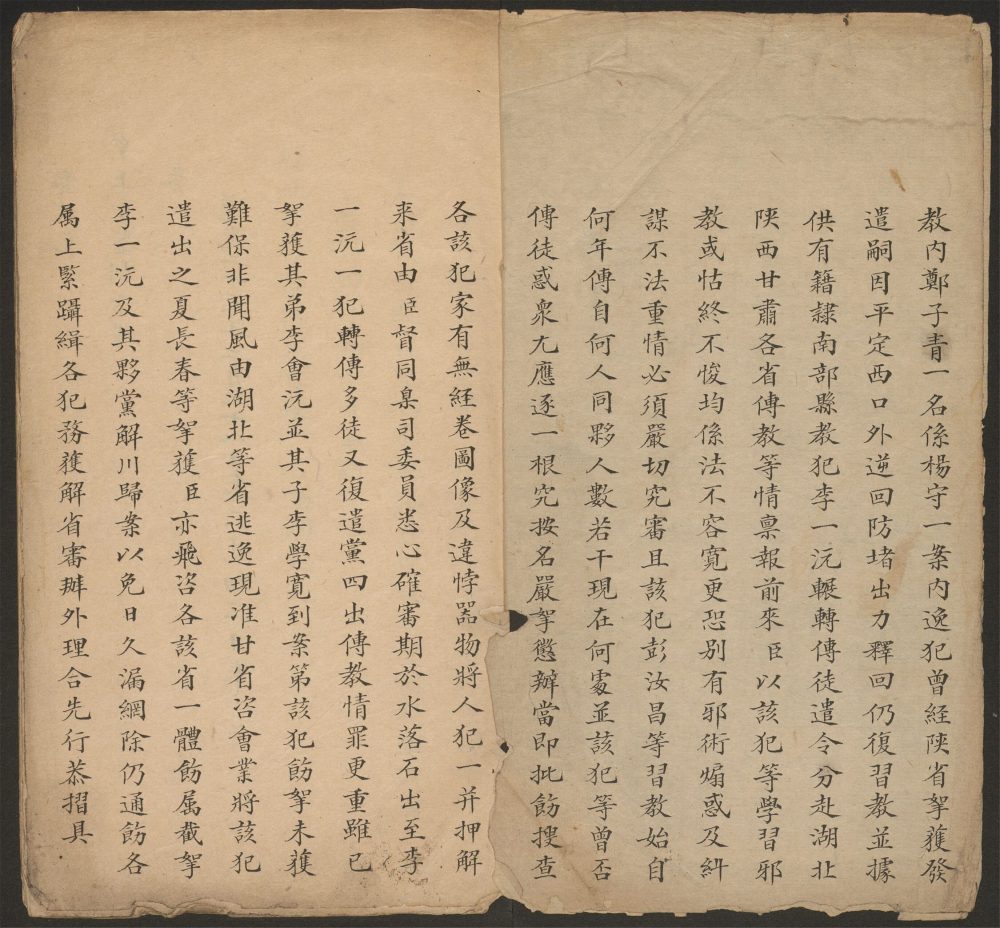 教內鄭子青一名係楊守一案內逸犯曾經陝省拏獲發
遣嗣因平定西口外逆回防堵出力釋回仍復習教並據
供有籍隸南部縣教犯李一沅輾轉傳徒遣令分赴湖北
陝西甘肅各省傳教等情稟報前來臣以該犯等學習邪
教或怙終不悛均係法不容寬更恐別有邪術煽惑及糾
謀不法重情必須嚴切究審且該犯彭汝昌等習教始自
何年傳自何人同夥人數若干現在何處並該犯等曾否
傳徒惑衆尤應逐一根究按名嚴拏懲辦當即批飭搜查
各該犯家有無經卷圖像及違悖噐物將人犯一并押解
來省由臣督同臬司委員悉心確審期於水落石出至李
一沅一犯轉傳多徒又復遣黨四出傳教情罪更重雖已
拏獲其弟李會沅並其子李學寬到案第該犯飭拏未獲
難保非聞風由湖北等省逃逸現准甘省咨會業將該犯
遣出之夏長春等拏獲臣亦飛咨各該省一體飭属截拏
李一沅及其夥黨解川歸案以免日久漏網除仍通飭各
属上緊躡緝各犯務獲解省審辦外理合先行恭摺具